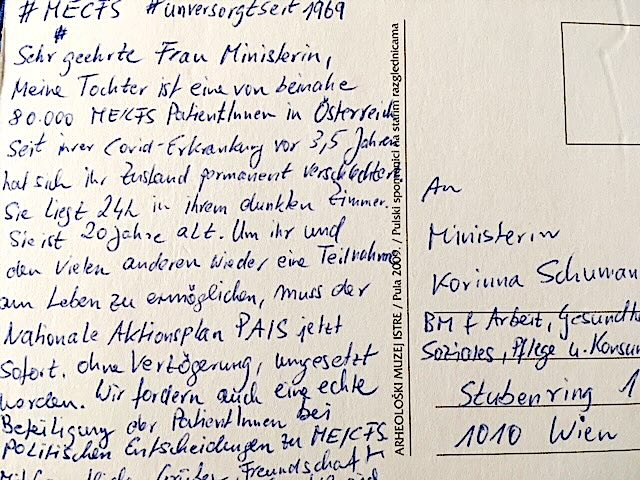 #MECFS #unversorgtseit1969
#
Sehr geehrte Frau Ministerin,
Meine Tochter ist eine von beinahe
80.000 ME/CFS PatientInnen in Österreich
Seit ihrer Covid-Erkrankung vor 3,5 Jahren
hat sich ihr Zustand permanent verschlechtert.
Sie liegt 24h in ihrem dunklen Zimmer.
Sie ist 20 Jahre alt. Um ihr und
den vielen anderen wieder eine Teilnahme
am Leben zu ermöglichen, muss der
Nationale Aktionsplan PAIS jetzt
sofort, ohne Verzögerung, umgesetzt
werden. Wir fordern auch eine echte
Beteiligung der PatientInnen bei
Politischen Entscheidungen zu ME/CFS
Freundschaft
ARHEOLOŠKI MUZEJ ISTRE / Pula 2009. / Pulski spomenici na starim razglednicama
An
Ministerin
Korinna Schuman
BM f Arbeit, Gesundhe
Soziales, Pflege u. Konsum
Stubenring 1
1010 Wien